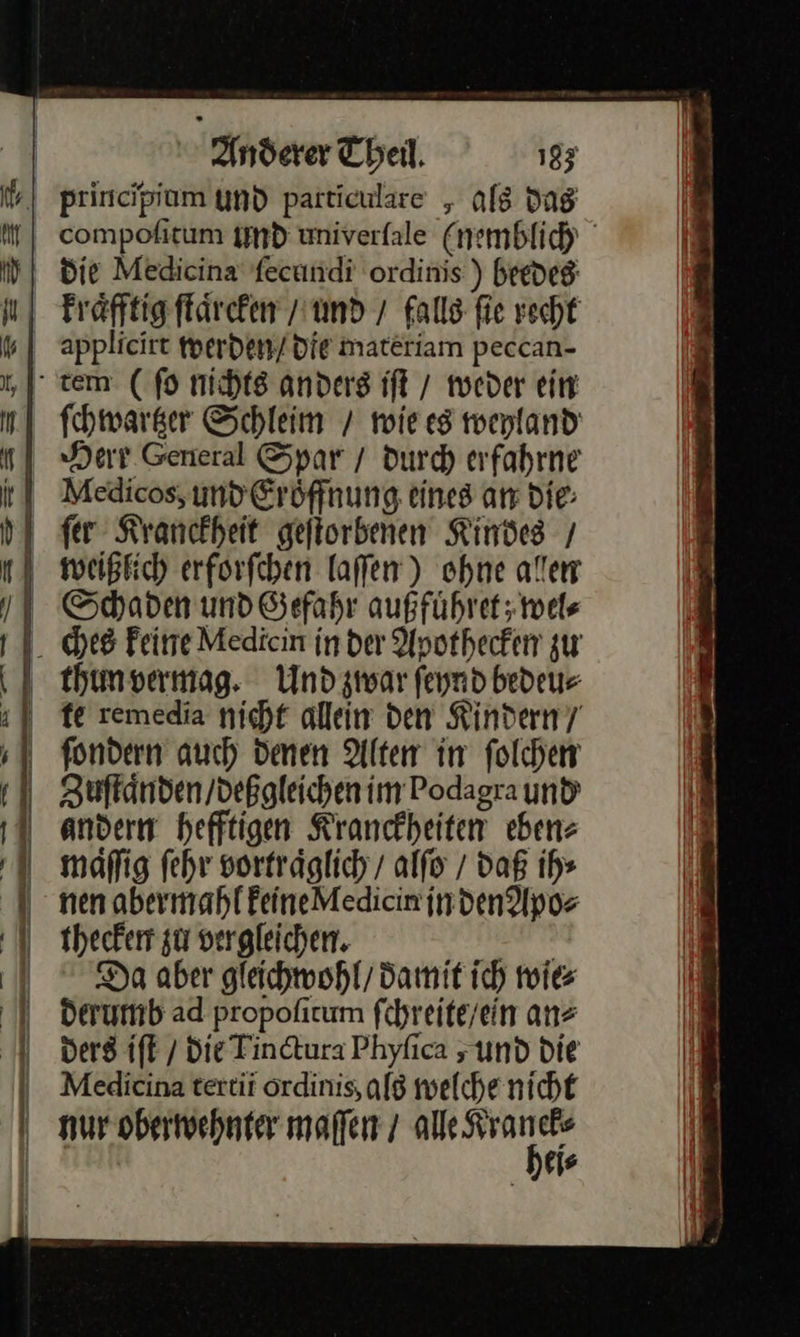 Anderer Theil. 183
principium und particulare , als das
compoſitum und univerſale (nemblich
die Medicina ſecundi ordinis) beedes
kraͤfftig ſtaͤrcken / und / falls ſie recht
applicirt werden/ die materiam peccan-
tem ( ſo nichts anders iſt / weder ein
ſchwartzer Schleim / wie es weyland
Herr General Spar / durch erfahrne
Medicos, und Eroͤffnung eines an die⸗
ſer Kranckheit geſtorbenen Kindes /
weißlich erforſchen laſſen) ohne allen
Schaden und Gefahr außfuͤhret; wel⸗
ches keine Medicin in der Apothecken zu
thun vermag. Und zwar ſeynd bedeu⸗
te remedia nicht allein den Kindern /
ſondern auch denen Alten in ſolchen
Zuſtaͤnden/deßgleichen im Podagra und
andern hefftigen Kranckheiten eben⸗
maͤſſig ſehr vortraͤglich / alſo / daß ih⸗
nen abermahl keine Medicin in den Apo⸗
thecken zu vergleichen.
Da aber gleichwohl/ damit ich wie⸗
derumb ad propoſitum ſchreite/ein an⸗
ders iſt / die Tinctura Phyſica , und die
Medicina tertii ordinis, als welche nicht
nur oberwehnter maſſen / alle Kranck⸗
hei⸗